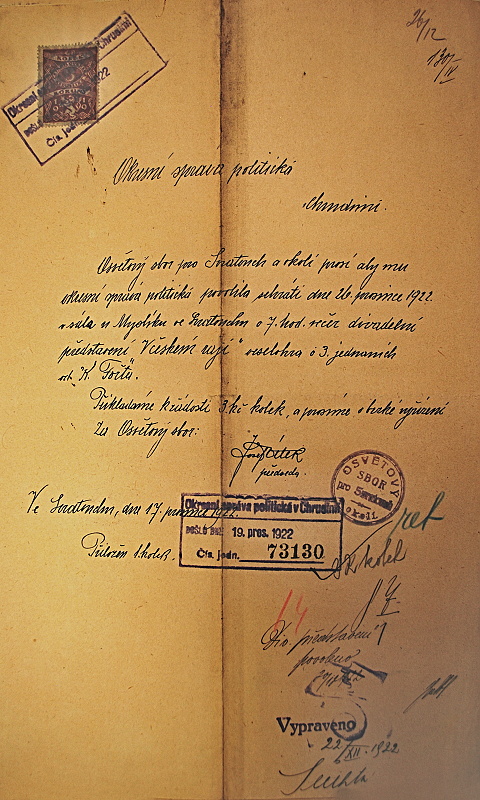 26/12
130/IV
Okresní správa politická v Chrudimi
Čís. jedn.
Okresní správa politická
Chrudimi.
Osvětový sbor pro Svratouch a okolí prosí aby mu
okresní správa politická povolila sehráti dne 26. prosince 1922
v sále u Myslíka ve Svratouchu o 7. hod. večer divadelní
představení "V českém ráji" veselohra o 3. jednáních
od "K. Fořta".
Přikládáme k žádosti 3 kč kolek, a prosíme o brzké vyřízení
Za Osvětový sbor:
Josef
předseda.
OSVĚTOVÝ SBOR pro Svratouch a okolí
Ve Svratouchu, dne 17. prosince 1922
Okresní správa politická v Chrudimi
DOŠLO DNE 19. pros. 1922
Čís. jedn. 73130
Přiložen 1 kolek.
kolek
14
Div. představení
povoleno
Vypraveno
22/XII 1922